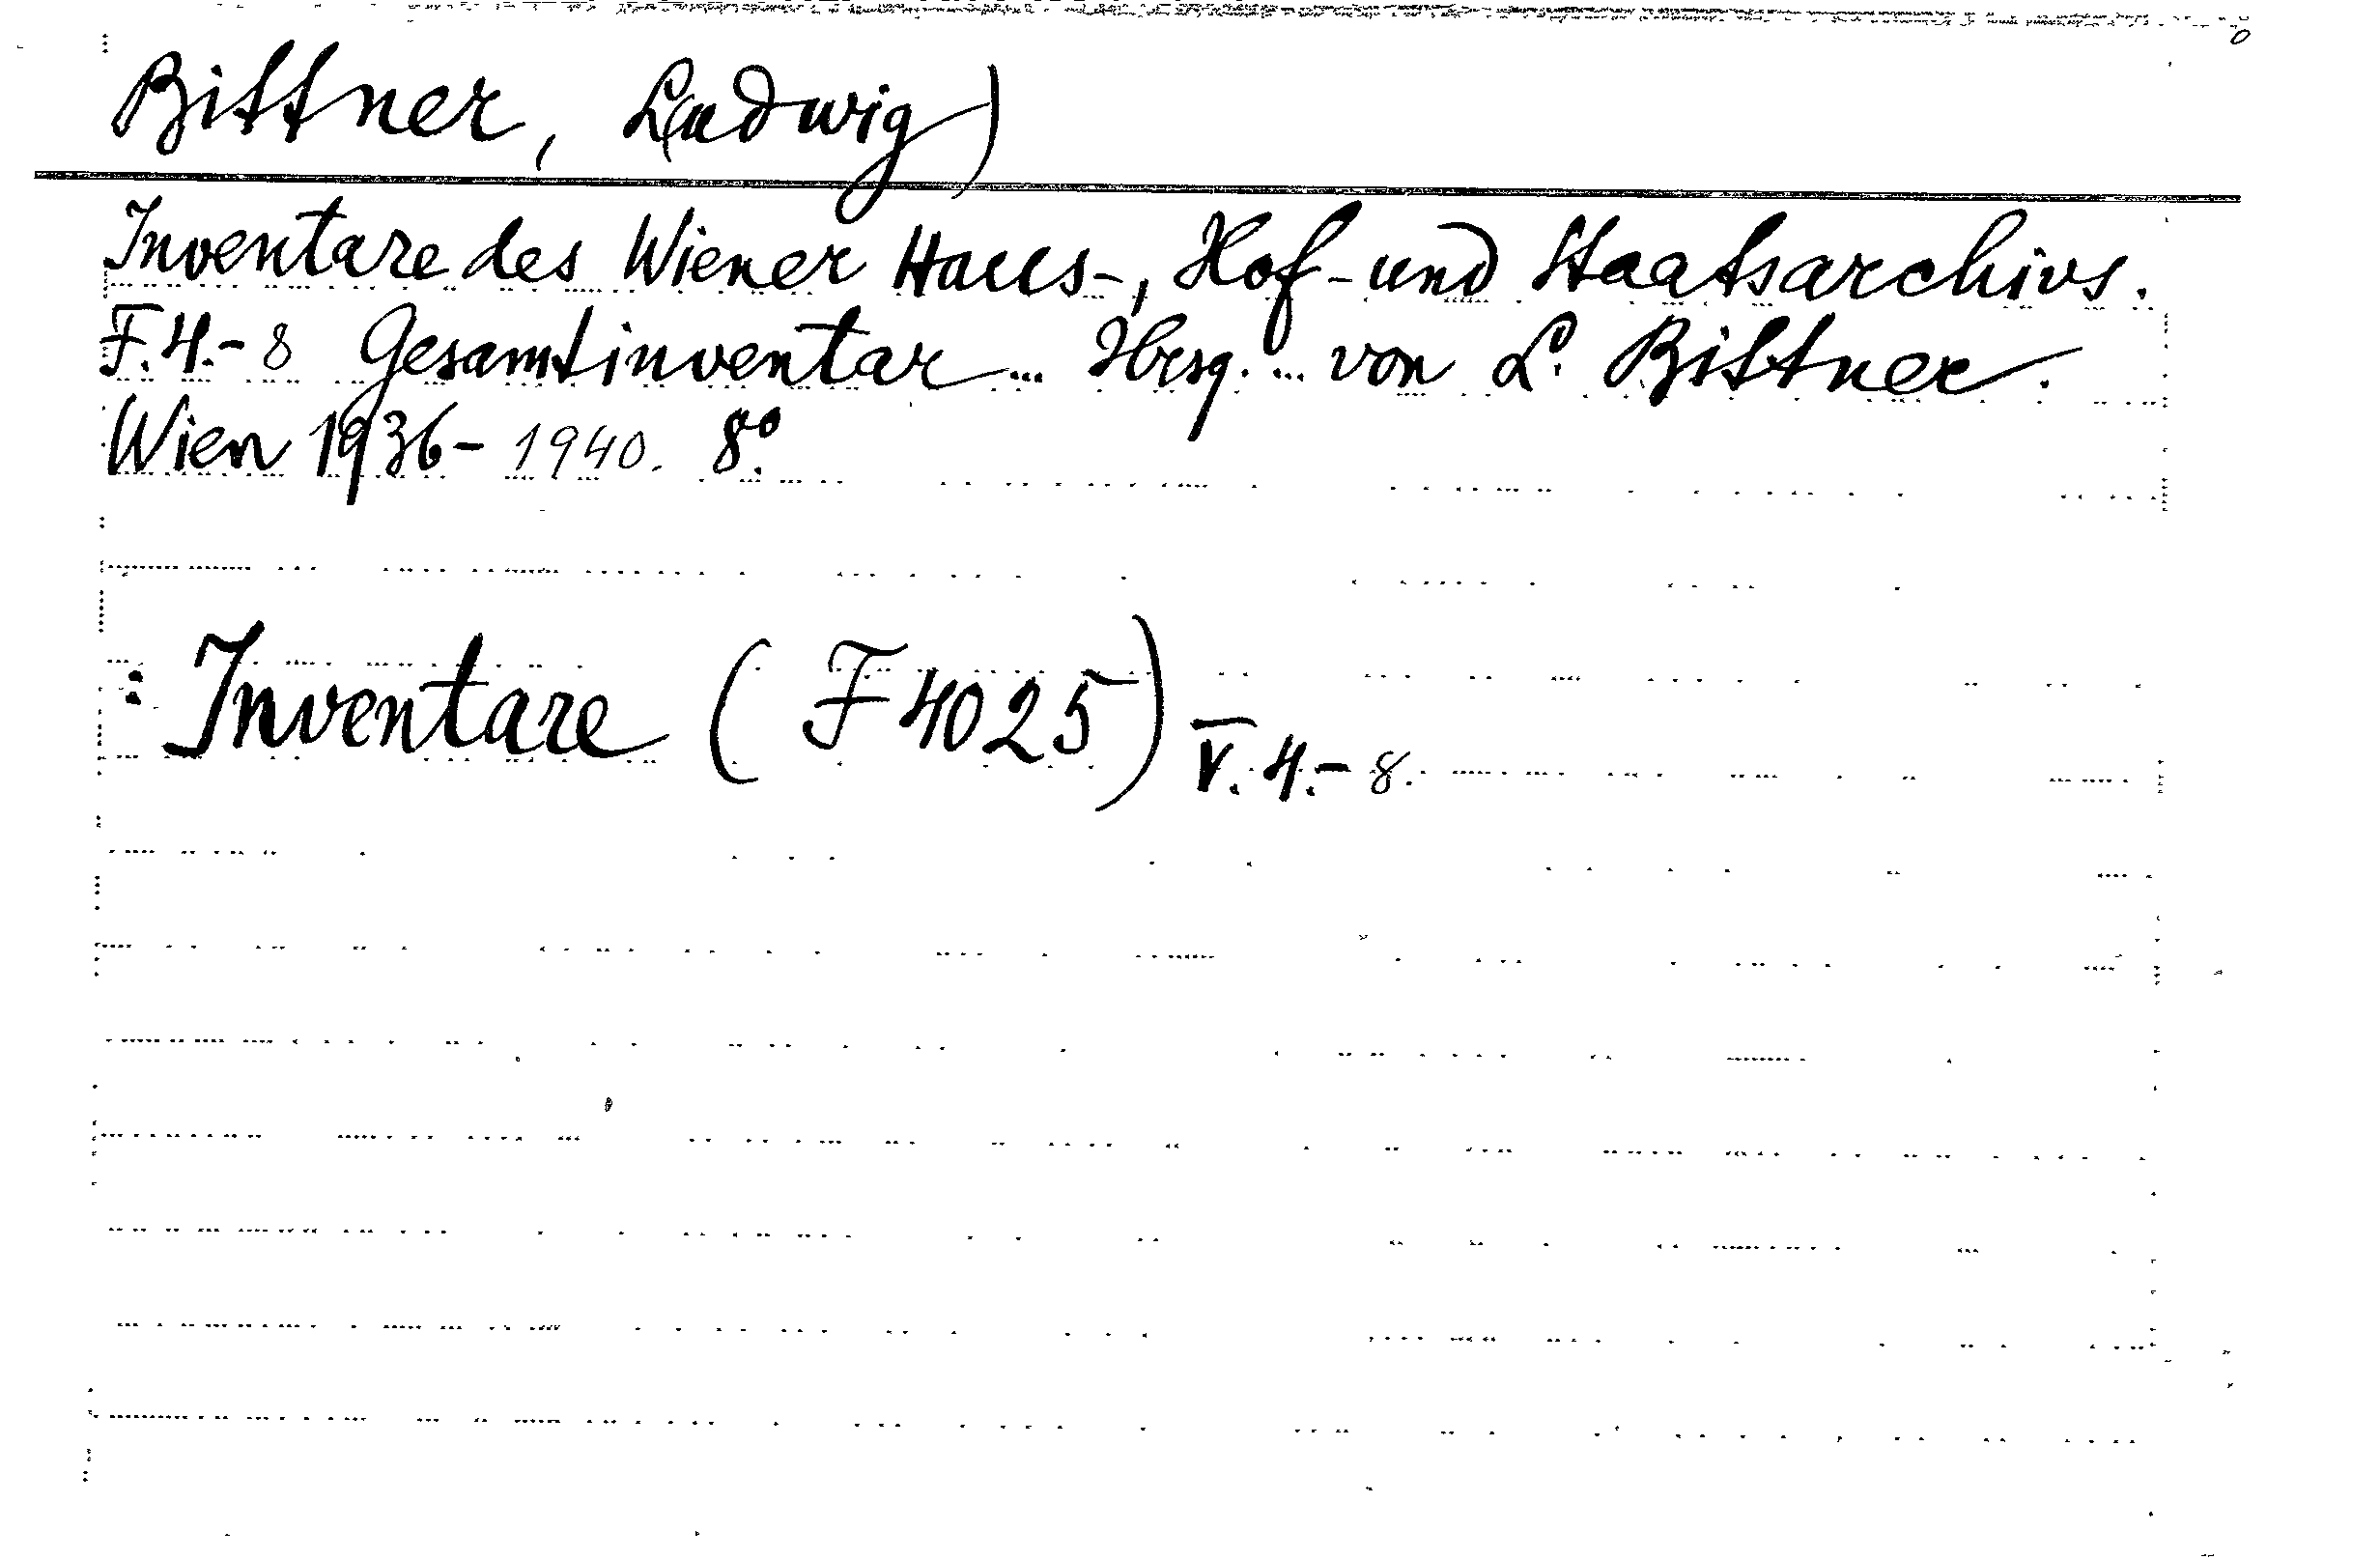 Bittner, L(udwig)
Inventare des Wiener Haus-, Hof- und Staatsarchivs.
F. 4.- 8 Gesamtinventar ... Hrsg. ... von L. Bittner.
Wien 1936- 1940. 8°.
: Inventare (F 4025) V. 4.- 8.